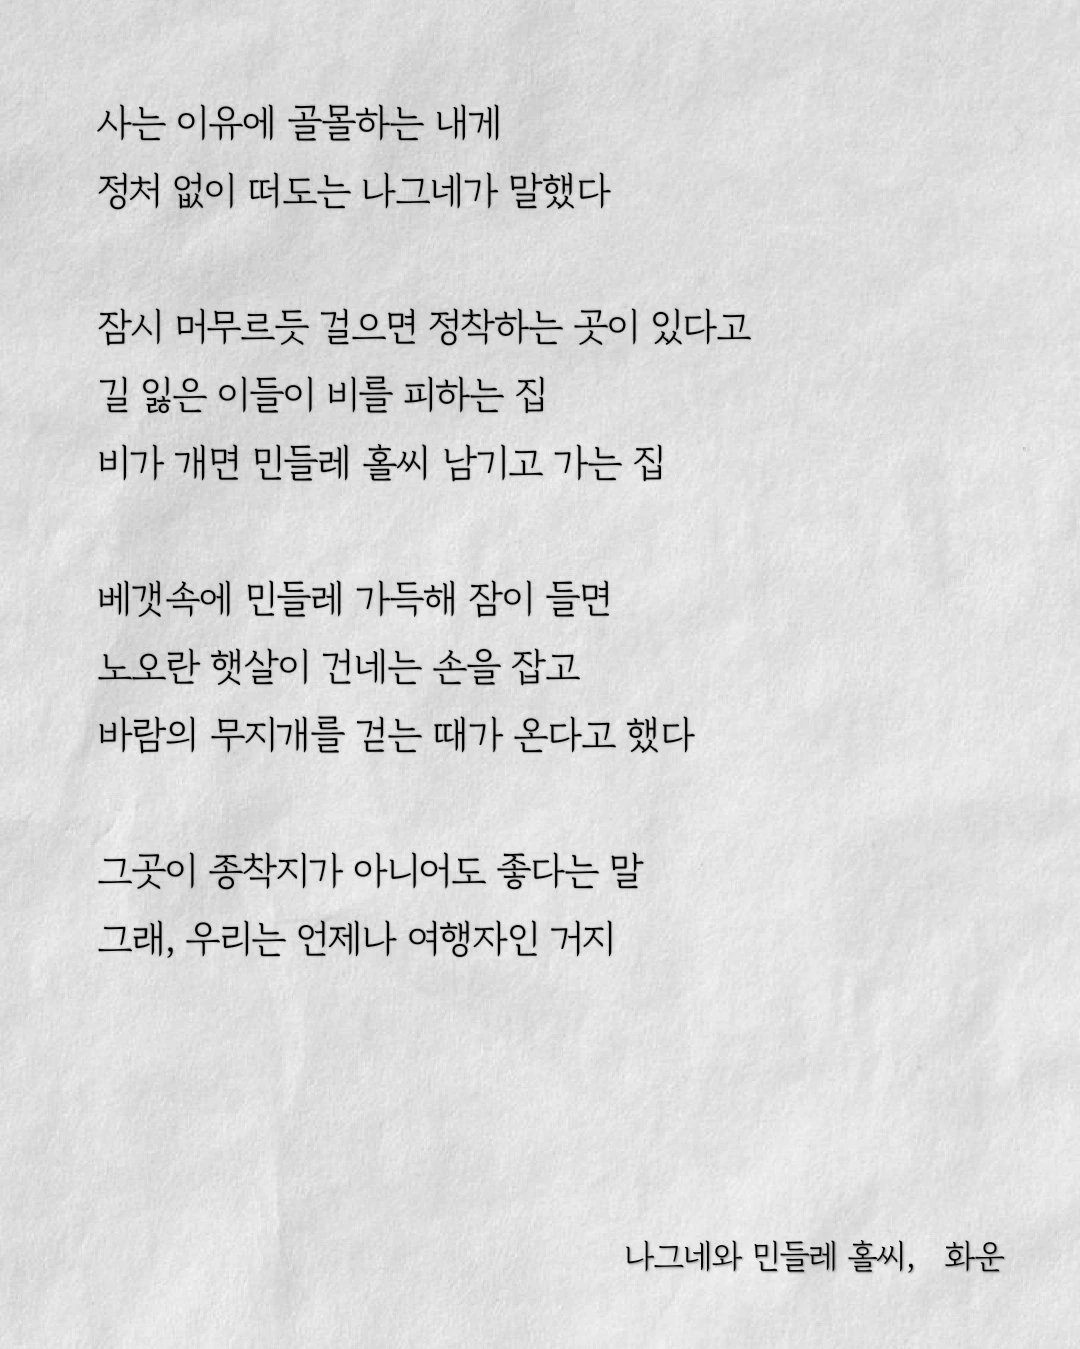 사는 이유에 골몰하는 내게
정처 없이 떠도는 나그네가 말했다
잠시 머무르듯 걸으면 정착하는 곳이 있다고
길 잃은 이들이 비를 피하는 집
비가 개면 민들레 홀씨 남기고 가는 집
베갯속에 민들레 가득해 잠이 들면
노오란 햇살이 건네는 손을 잡고
바람의 무지개를 걷는 때가 온다고 했다
그곳이 종착지가 아니어도 좋다는 말
그래, 우리는 언제나 여행자인 거지
나그네와 민들레 홀씨, 화운